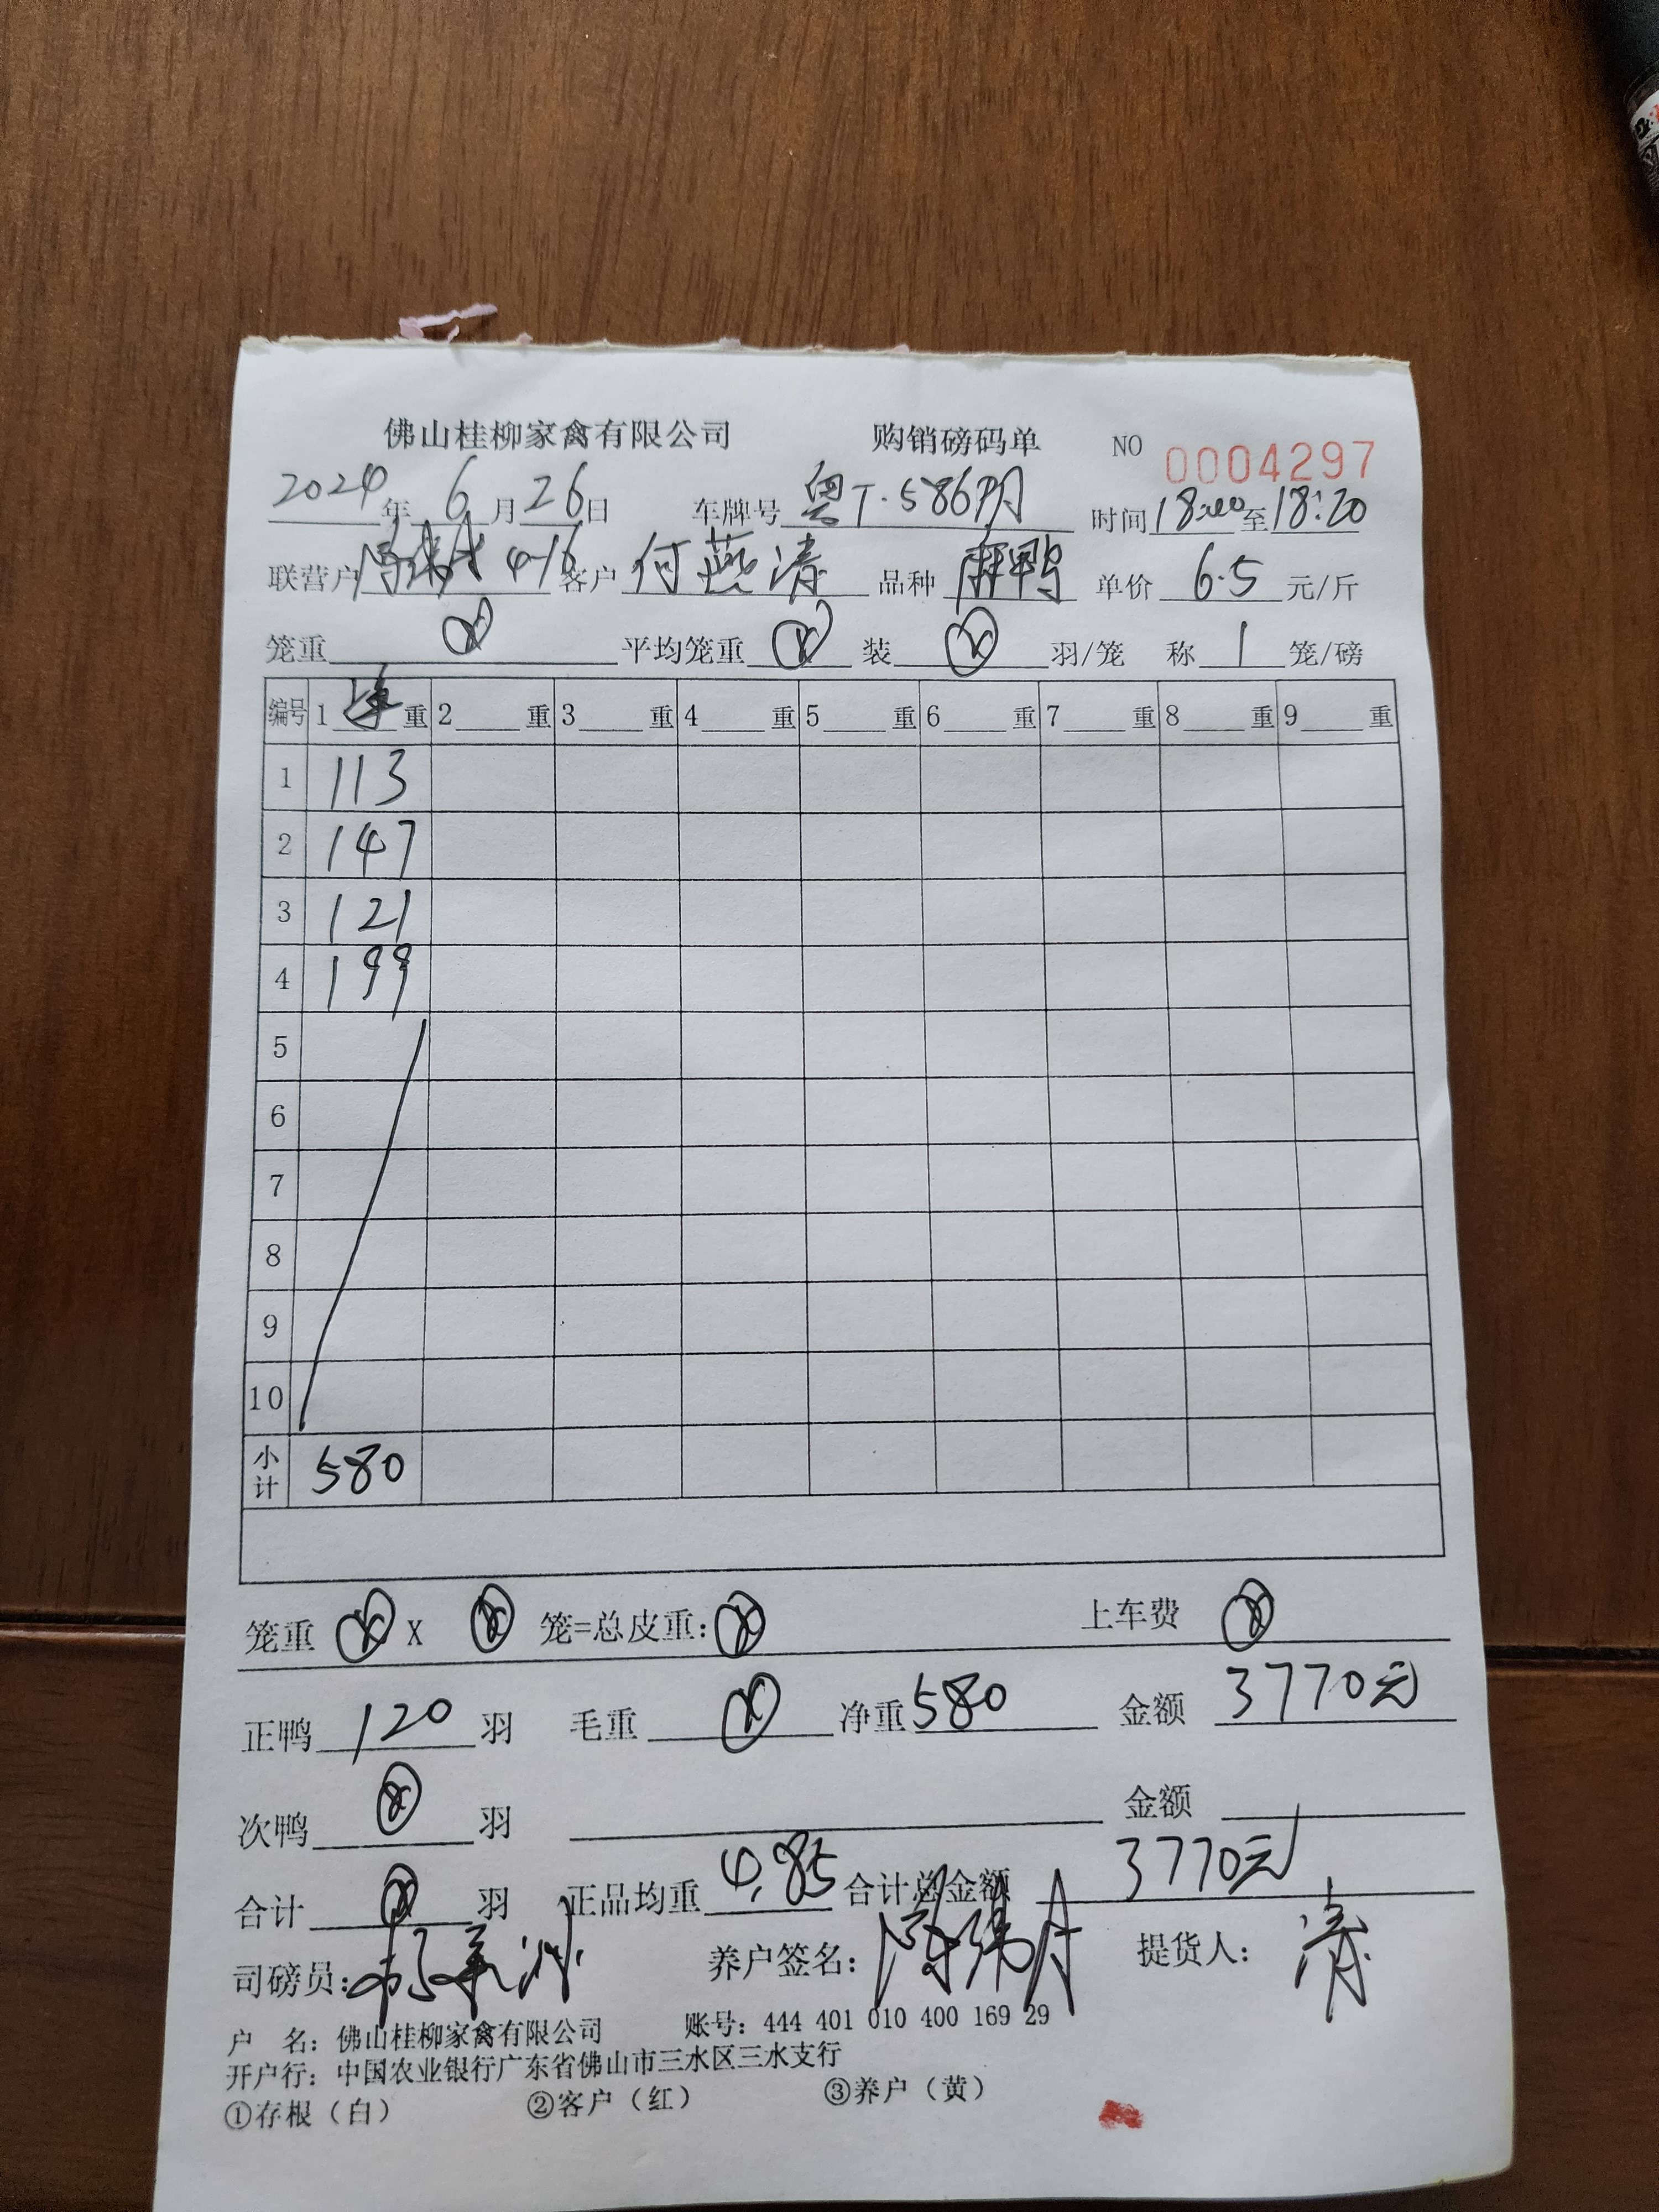 佛山桂柳家禽有限公司 购销磅码单 NO 0004297
2024年 6月26日 车牌号 粤T·586 时间 18:00至18:20
联营户 4-16 客户 付燕清 品种 麻鸭 单价 6.5 元/斤
笼重 ⊗ 平均笼重 ⊗ 装 ⊗ 羽/笼 称 1 笼/磅
编号 1 净 重 2 重 3 重 4 重 5 重 6 重 7 重 8 重 9 重
1 113
2 147
3 121
4 199
5
6
7
8
9
10
小计 580
笼重 ⊗ X ⊗ 笼=总皮重: ⊗ 上车费 ⊗
正鸭 120 羽 毛重 ⊗ 净重 580 金额 3770元
次鸭 ⊗ 羽 金额
合计 ⊗ 羽 正品均重 4.85 合计总金额 3770元
司磅员: 养户签名: 提货人: 清
户 名: 佛山桂柳家禽有限公司 账号: 444 401 010 400 169 29
开户行: 中国农业银行广东省佛山市三水区三水支行
①存根（白） ②客户（红） ③养户（黄）